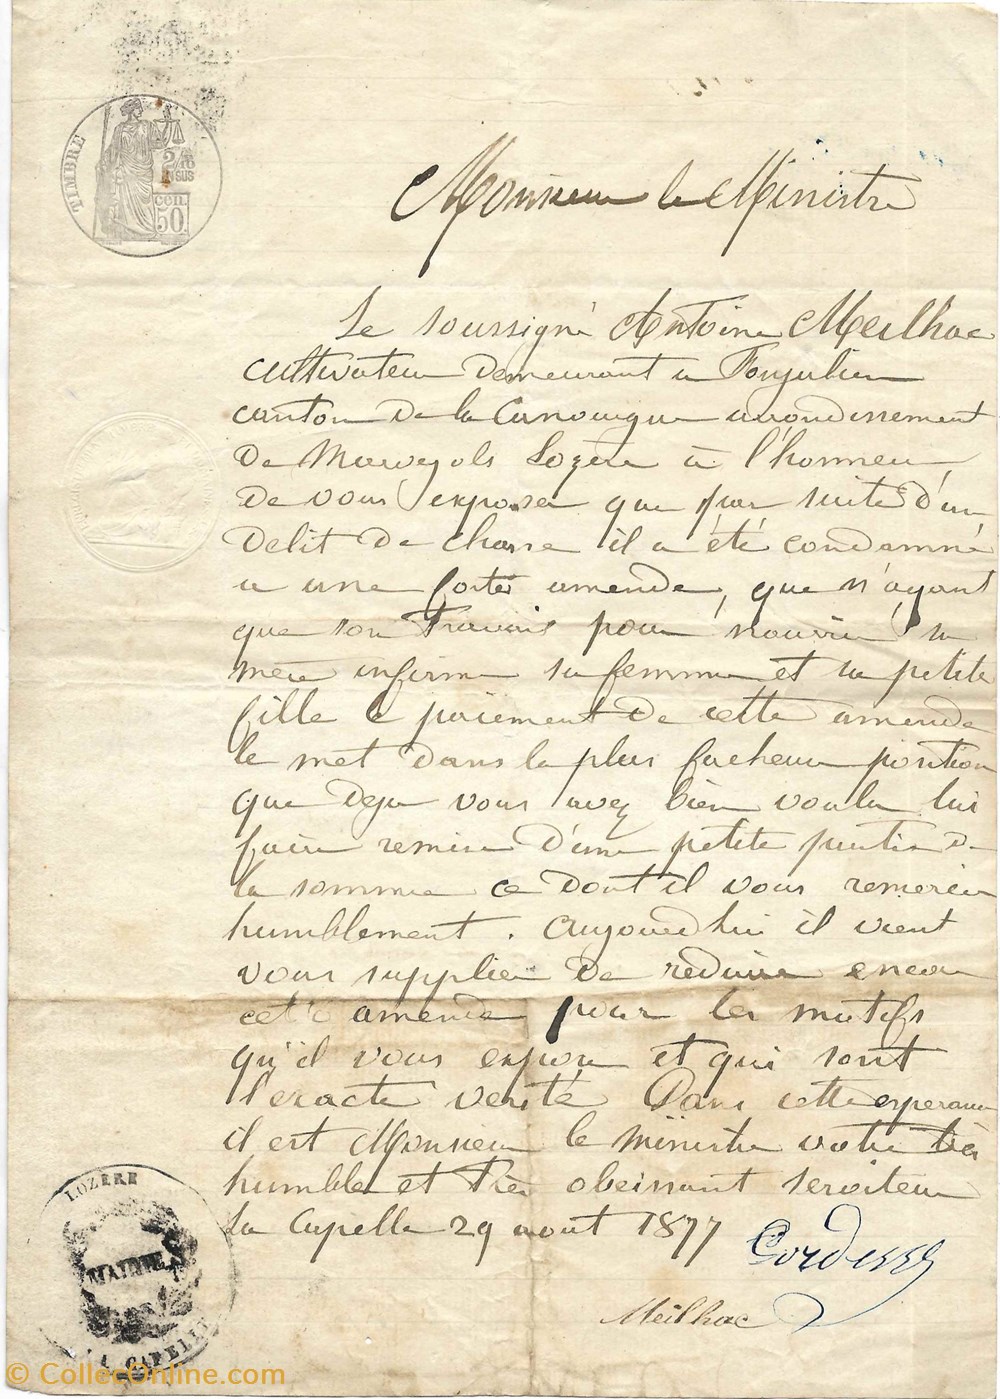 TIMBRE
2/10 EN SUS
50 cen.
Monsieur le Ministre
Le soussigné Antoine Meilhac
cultivateur demeurant a Fonjulien
canton de la Canourgue arrondissement
de Marvejols Lozère à l'honneur
de vous exposer que par suite d'un
delit de chasse il a été condamné
a une forte amende, que n'ayant
que son travail pour nourrir sa
mère infirme sa femme et sa petite
fille le paiement de cette amende
le met dans la plus facheuse position
que deja vous avez bien voulu lui
faire remise d'une petite partie de
la somme ce dont il vous remercie
humblement. Aujourdhui il vient
vous supplier de reduire encore
cette amende pour les motifs
qu'il vous expose et qui sont
l'exacte verité Dans cette esperance
il est Monsieur le ministre votre très
humble et très obeissant serviteur
La Capelle 29 aout 1877
Cordesse
Meilhac
LOZÈRE
MAIRIE
LA CAPELLE
© CollecOnline.com